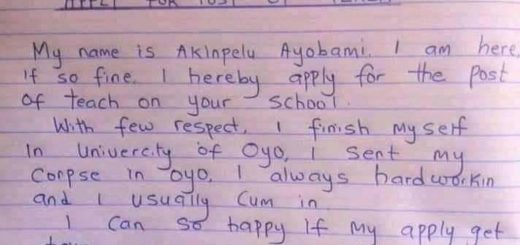 APPLY FOR POST OF TEACH
My name is Akinpelu Ayobami. I am here,
if so fine. I hereby apply for the post
of teach on your school.
With few respect, I finish my serf
In Univercity of Oyo, I sent my
Corpse in Oyo, I always hardworkin
and I usually Cum in.
I Can so happy If my apply get